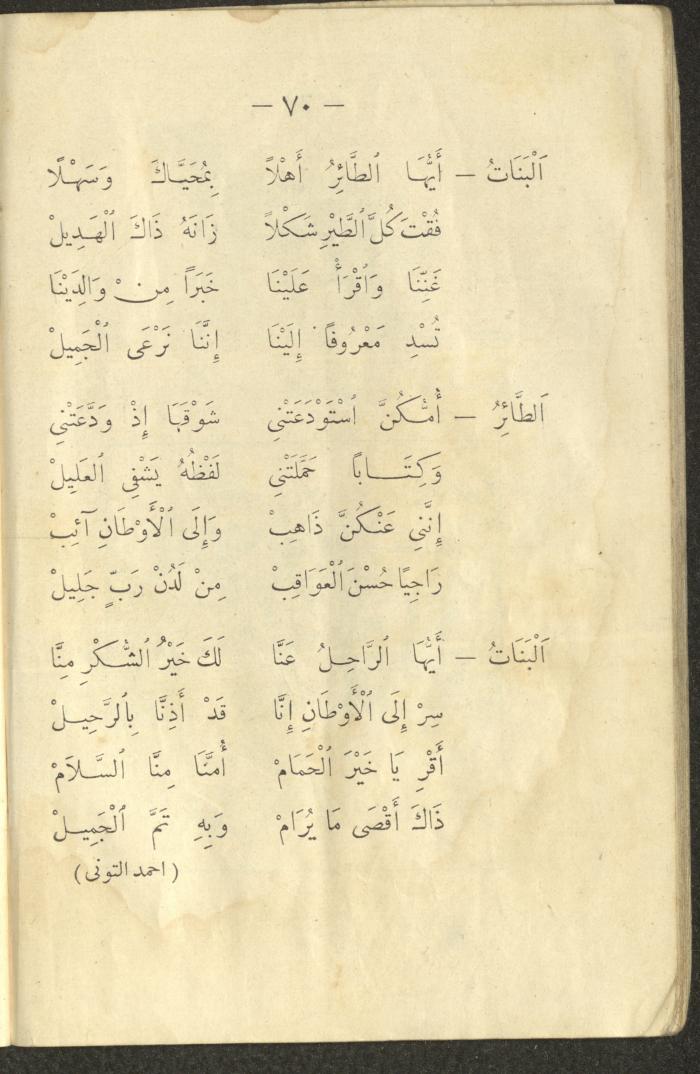 — ٧٠ —
اَلْبَنَاتُ — أَيُّهَا ٱلطَّائِرُ أَهْلاً بِمُحَيَّاكَ وَسَهْلًا
فُقْتَ كُلَّ ٱلطَّيْرِ شَكْلاً زَانَهُ ذَاكَ ٱلْهَدِيلْ
غَنِّنَا وَٱقْرَأْ عَلَيْنَا خَبَرًا مِنْ وَالِدَيْنَا
تُسْدِ مَعْرُوفًا إِلَيْنَا إِنَّنَا نَرْعَى ٱلْجَمِيلْ
اَلطَّائِرُ — أُمُّكُنَّ ٱسْتَوْدَعَتْنِي شَوْقَهَا إِذْ وَدَّعَتْنِي
وَكِتَابًا حَمَّلَتْنِي لَفْظُهُ يَشْفِي ٱلعَلِيلْ
إِنَّنِي عَنْكُنَّ ذَاهِبْ وَإِلَى ٱلْأَوْطَانِ آئِبْ
رَاجِيًا حُسْنَ ٱلْعَوَاقِبْ مِنْ لَدُنْ رَبٍّ جَلِيلْ
اَلْبَنَاتُ — أَيُّهَا ٱلرَّاحِلُ عَنَّا لَكَ خَيْرُ ٱلشُّكْرِ مِنَّا
سِرْ إِلَى ٱلْأَوْطَانِ إِنَّا قَدْ أَذِنَّا بِٱلرَّحِيلْ
أَقْرِ يَا خَيْرَ ٱلْحَمَامْ أُمَّنَا مِنَّا ٱلسَّلاَمْ
ذَاكَ أَقْصَى مَا يُرَامْ وَبِهِ تَمَّ ٱلْجَمِيلْ
(احمد التونى)